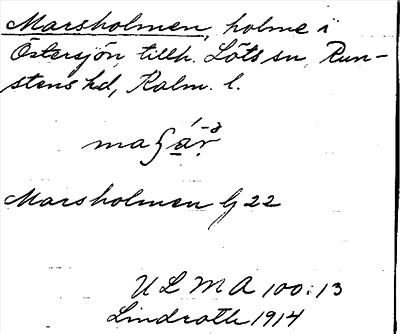 Marsholmen, holme i
Östersjön, tillh. Löts sn, Run-
stens hd, Kalm. l.
Marsholmen Gj 22
ULMA 100:13
Lindroth 1914